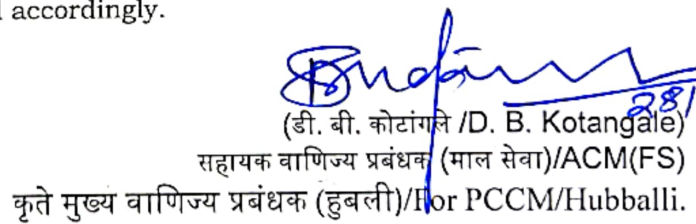 accordingly.
281
(डी. बी. कोटांगले /D. B. Kotangale)
सहायक वाणिज्य प्रबंधक (माल सेवा)/ACM(FS)
कृते मुख्य वाणिज्य प्रबंधक (हुबली)/For PCCM/Hubballi.